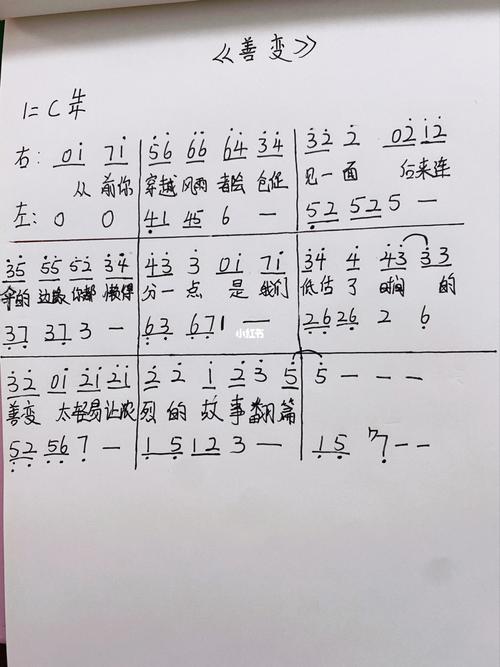 《善变》
1=C 4/4
右: 01̇ 71̇ | 5̇6̇ 6̇6̇ 6̇4̇ 3̇4̇ | 3̇2̇ 2̇ 02̇ 1̇2̇
从前你 穿越风雨都会仓促 见一面 后来连
左: 0 0 | 4̣1 45 6 — | 5̣2 52 5 —
3̇5̇ 5̇5̇ 5̇2̇ 3̇4̇ | 4̇3̇ 3̇ 01̇ 71̇ | 3̇4̇ 4̇ 4̇3̇ 3̇3̇
伞的边缘你都懒得 分一点 是我们 低估了时间的
3̣7̣ 3̣7̣ 3 — | 6̣3 6̣71 — | 2̣6̣ 2̣6̣ 2 6̣
3̇2̇ 01̇ 2̇1̇ 2̇1̇ | 2̇ 2̇ 1̇ 2̇3̇ 5̇ | 5̇ — — —
善变 太轻易让浓 烈的故事翻篇
5̣2̣ 5̣6̣ 7̣ — | 1̣5̣ 12 3 — | 1̣5̣ 7̣ — —
小红书